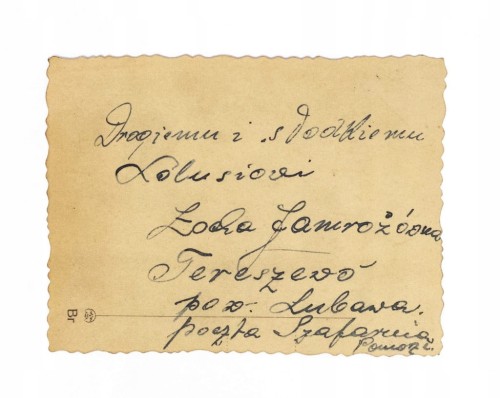 Drogiemu i słodkiemu
Lolusiowi
Zocha Jamrożówna
Tereszewo
pow. Lubawa.
poczta Szafarnia
Pomorze.
Br